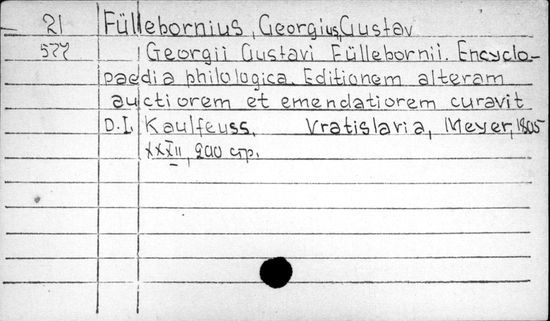 21 Füllebornius, Georgius Gustav
577 Georgii Gustavi Füllebornii. Encyclo-
paedia philologica. Editionem alteram
auctiorem et emendatiorem curavit
D.I. Kaulfeuss. Vratislavia, Meyer, 1805
XXXII, 200 стр.